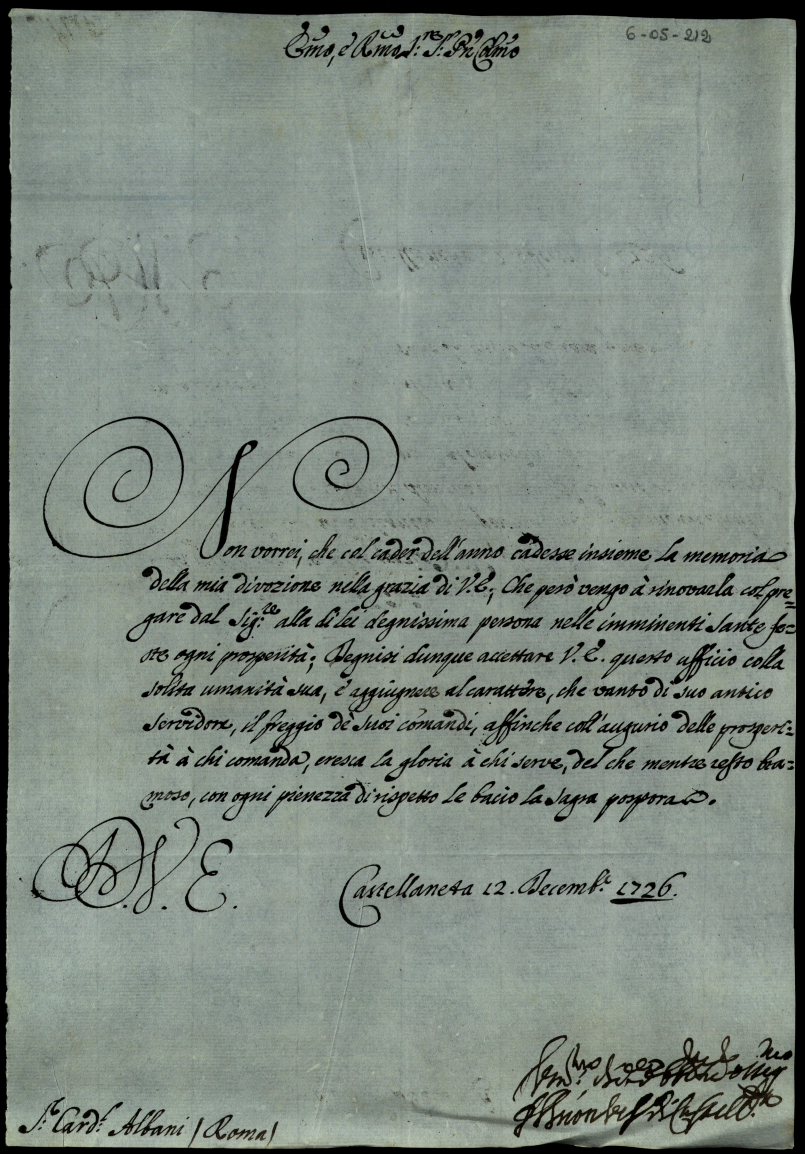 6-05-212
Em̃o, è Rm̃o S.r S.r Pn̄ Colm̃o
Non vorrei, che col cader dell'anno cadesse insieme la memoria
della mia divozione nella grazia di V.E; Che però vengo à rinovarla col pre=
gare dal Sig.re alla di lei degnissima persona nelle imminenti Sante fe=
ste ogni prosperità; Degnisi dunque accettare V.E. questo ufficio colla
solita umanità sua, è aggiugnere al carattere, che vanto di suo antico
servidore, il freggio dè suoi comandi, affinche coll'augurio delle prosperi=
tà à chi comanda, cresca la gloria à chi serve, del che mentre resto bra=
moso, con ogni pienezza di rispetto le bacio la Sagra porpora.
D.V.E.
Castellaneta 12. Decemb.e 1726.
S.r Card.l Albani / Roma /